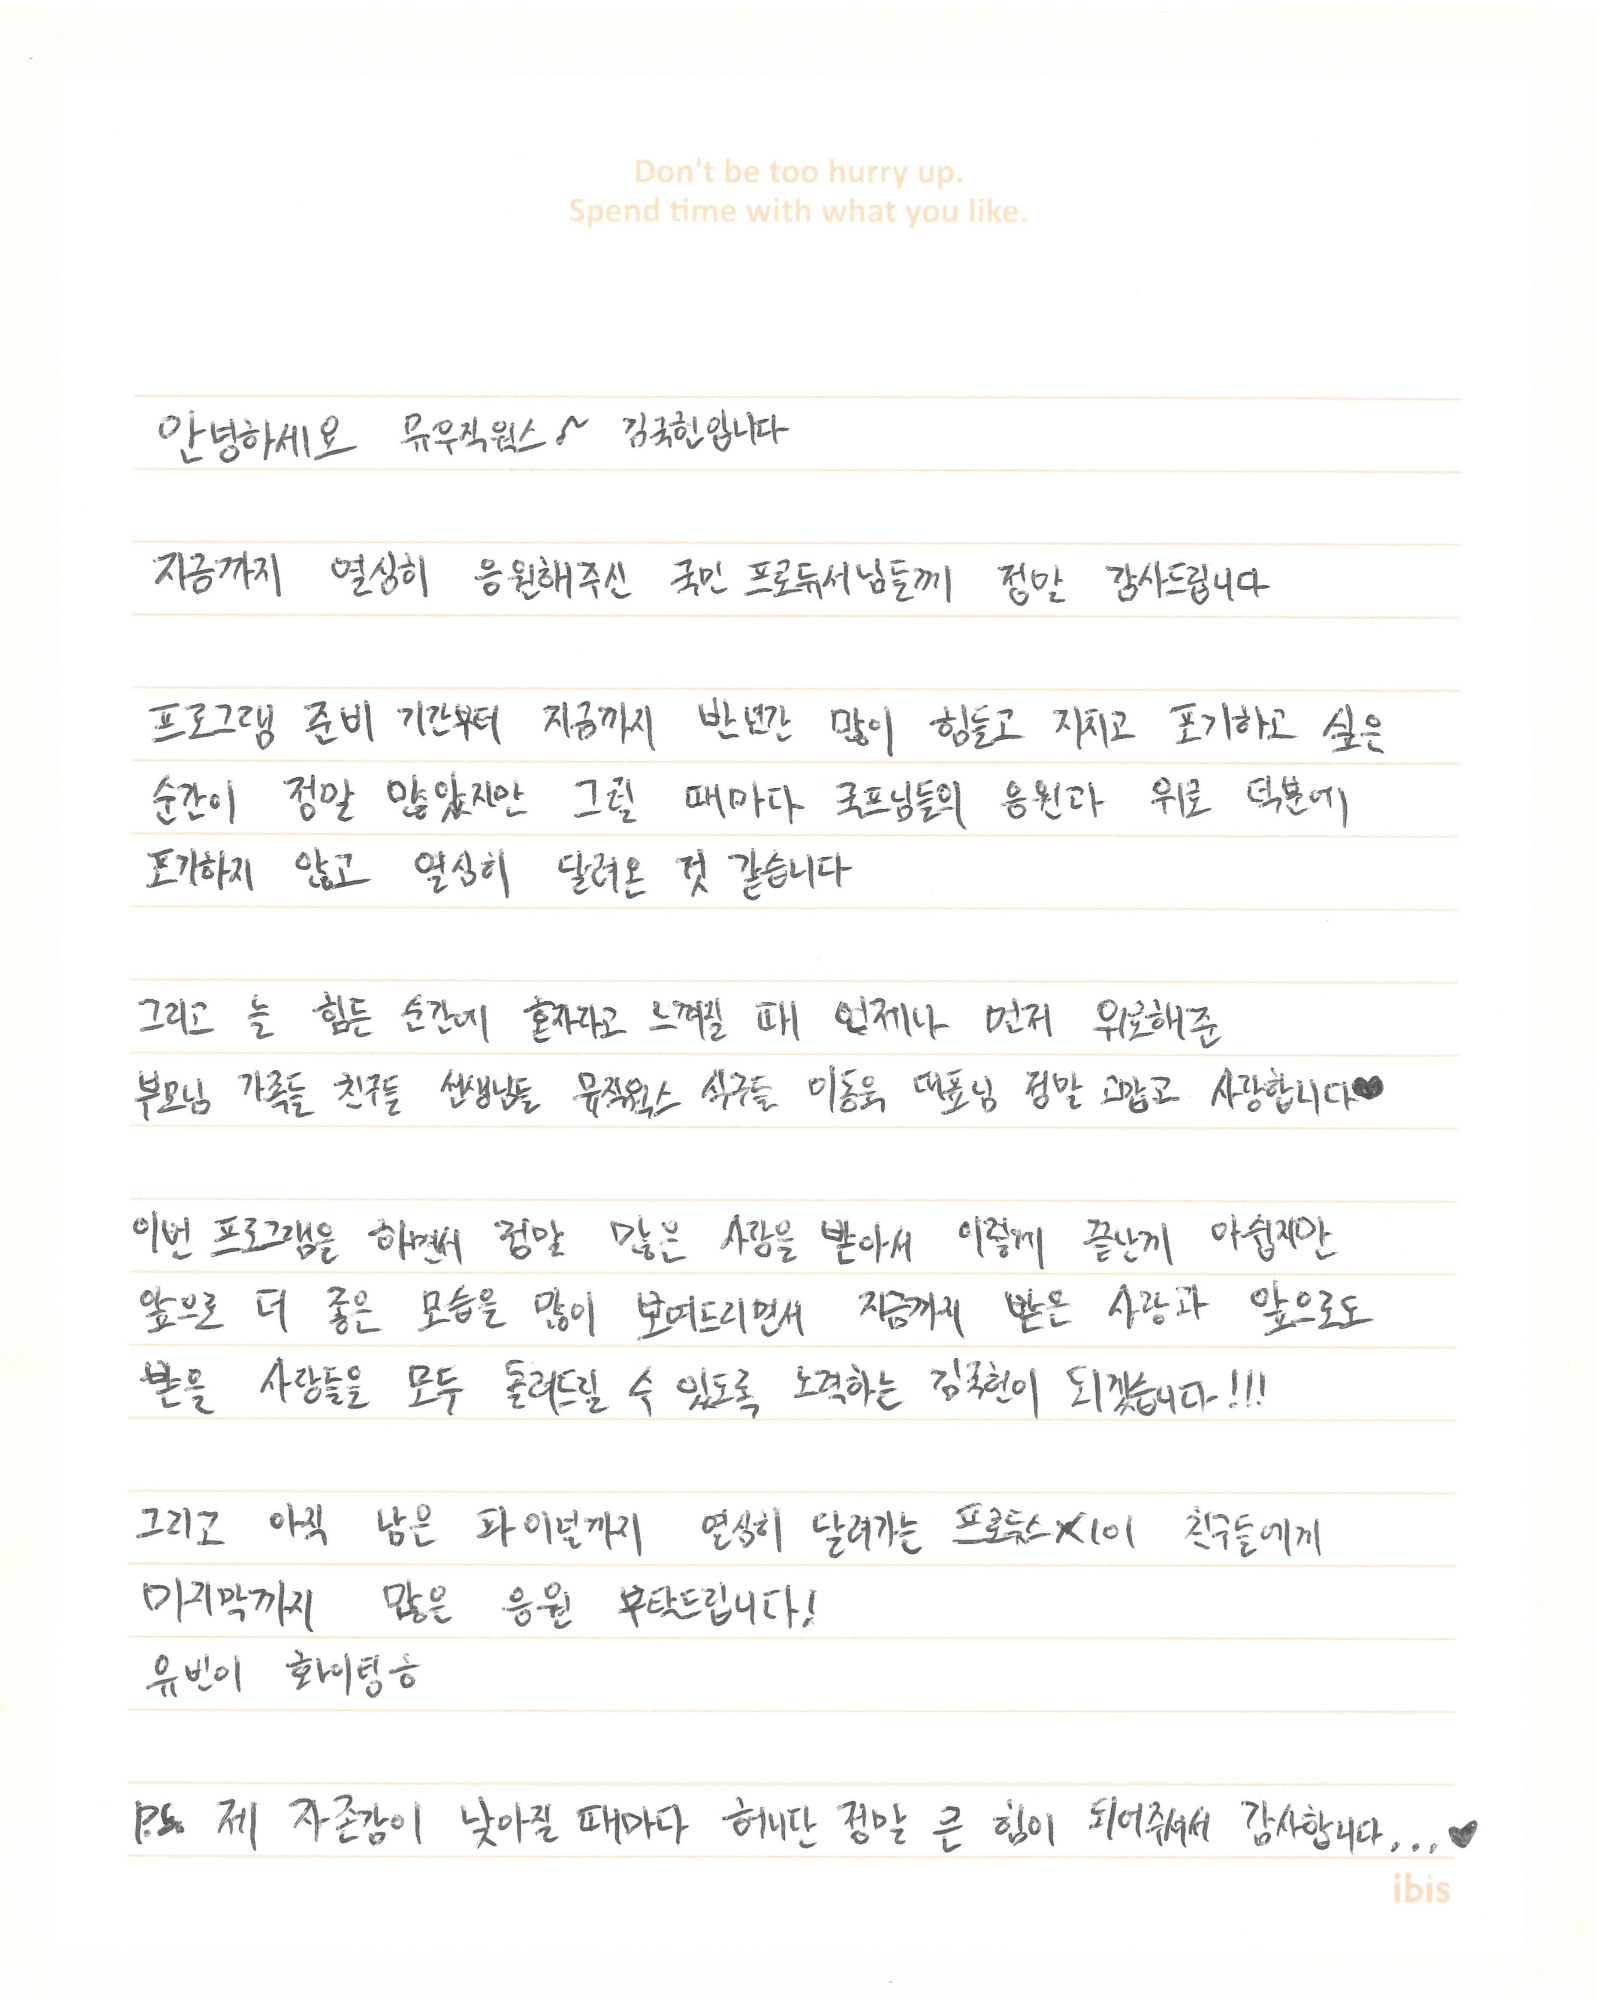 Don't be too hurry up.
Spend time with what you like.
안녕하세요 뮤우직웍스♪~ 김국헌입니다
지금까지 열심히 응원해주신 국민 프로듀서님들께 정말 감사드립니다
프로그램 준비 기간부터 지금까지 반년간 많이 힘들고 지치고 포기하고 싶은
순간이 정말 많았지만 그럴 때마다 국프님들의 응원과 위로 덕분에
포기하지 않고 열심히 달려온 것 같습니다
그리고 늘 힘든 순간에 혼자라고 느껴질 때 언제나 먼저 위로해준
부모님 가족들 친구들 선생님들 뮤직웍스 식구들 이동욱 대표님 정말 고맙고 사랑합니다♥
이번 프로그램을 하면서 정말 많은 사랑을 받아서 이렇게 끝난게 아쉽지만
앞으로 더 좋은 모습을 많이 보여드리면서 지금까지 받은 사랑과 앞으로도
받을 사랑들을 모두 돌려드릴 수 있도록 노력하는 김국헌이 되겠습니다!!!
그리고 아직 남은 파이널까지 열심히 달려가는 프로듀스X101 친구들에게
마지막까지 많은 응원 부탁드립니다!
유빈이 화이팅ㅎ
P.S. 제 자존감이 낮아질 때마다 허니단 정말 큰 힘이 되어주셔서 감사합니다...♥
ibis